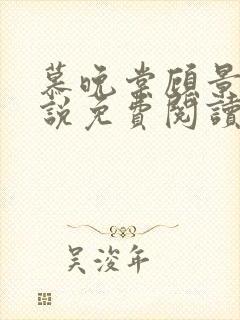 慕晚棠顧景
說免費閱讀
吴浚年